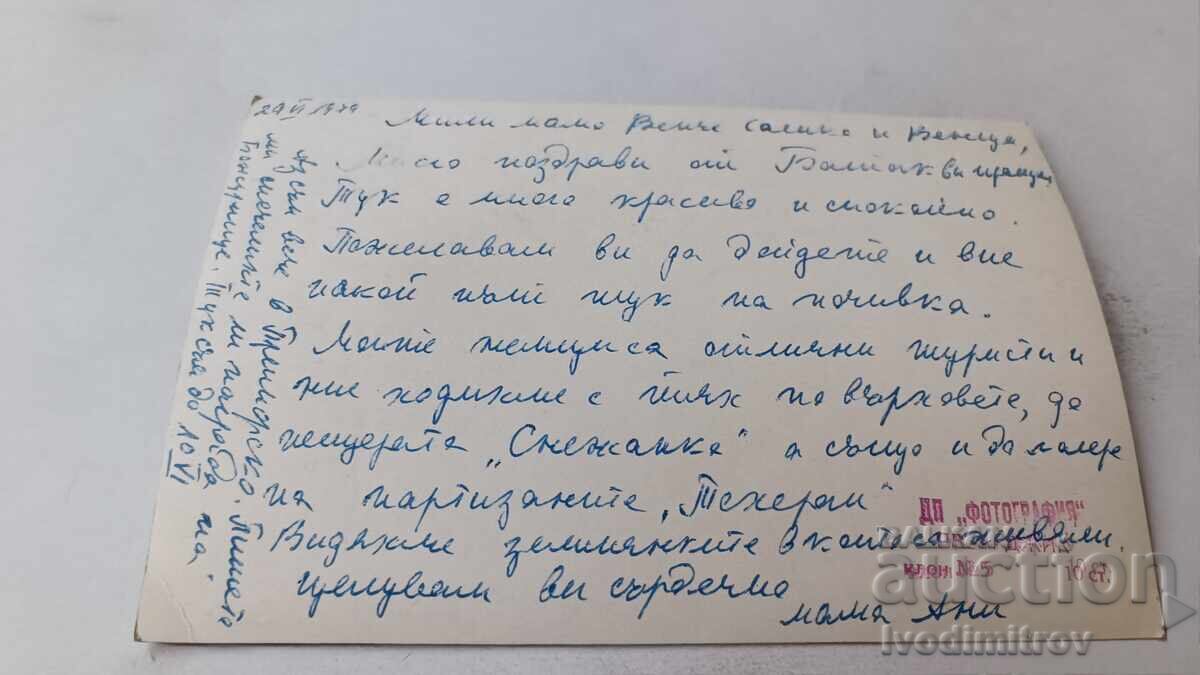 29 VI 1979
Мили мамо Венче и Венци,
Много поздрави от Батак ви пращам
Тук е много красиво и спокойно.
Пожелавам ви да дойдете и вие
някой път тук на почивка.
Моите немци са отлични туристи и
ние ходихме с тях по върховете, до
пещерата „Снежанка" а също и до лагера
на партизаните „Техеран"
Видяхме землянките в които са живяли.
Целувам ви сърдечно
мама Ани
Аз съм вече в Приморско. Пишете
ми спечелихте ли награда на
Тук съм до 10 VI
ДП „ФОТОГРАФИЯ"
клон №5 10 ст.
auction
Ivodimitrov